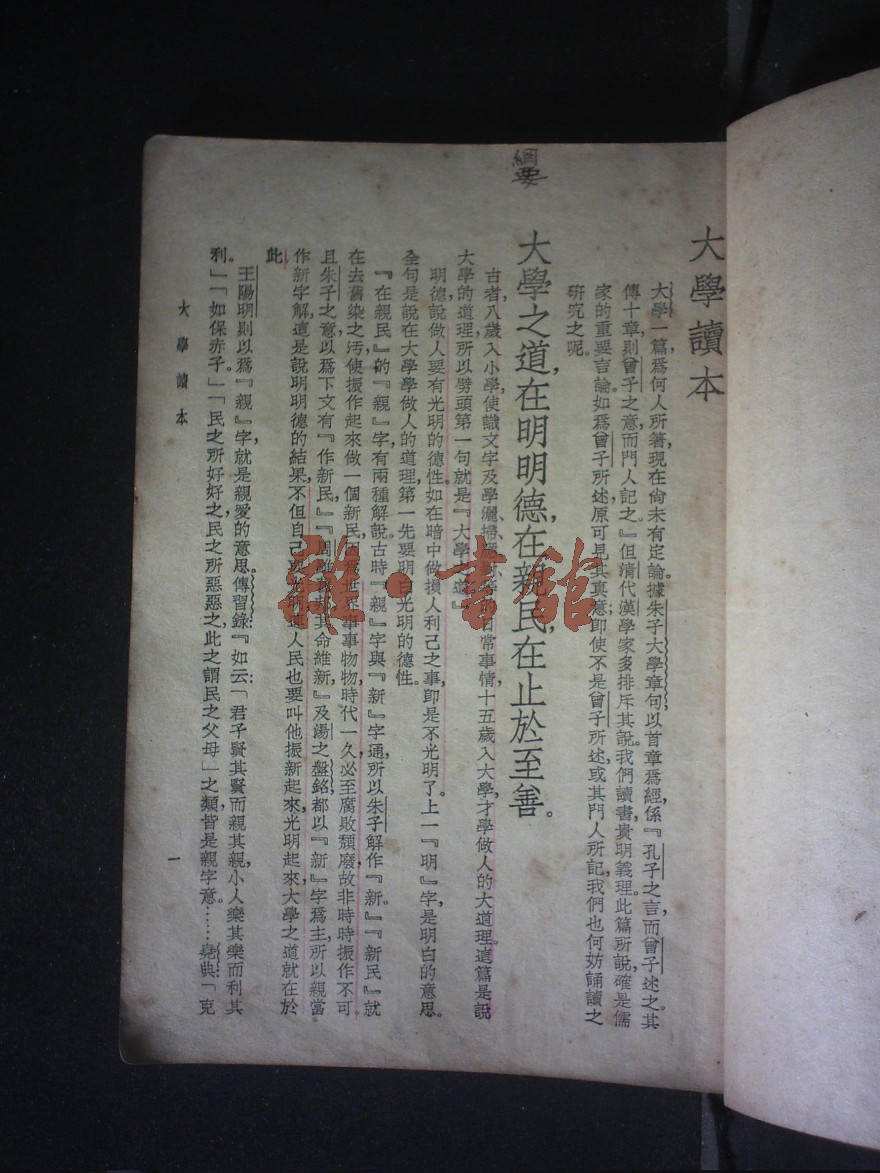 大學讀本
大學一篇，爲何人所著，現在尙未有定論。據朱子大學章句以首章爲經，係『孔子之言，而曾子述之。其
傳十章，則曾子之意，而門人記之。』但清代漢學家多排斥其說。我們讀書，貴明義理。此篇所說，確是儒
家的重要言論，如爲曾子所述，原可見其眞意；卽使不是曾子所述，或其門人所記，我們也何妨誦讀之
研究之呢。
綱要
大學之道，在明明德，在親民，在止於至善。
古者，八歲入小學，使識文字，及學灑、掃、應對等的日常事情，十五歲入大學，才學做人的大道理。這篇是說
大學的道理，所以劈頭第一句就是『大學之道』
明德，說做人要有光明的德性。如在暗中做損人利己之事，卽是不光明了。上一『明』字，是明白的意思。
全句是說在大學學做人的道理，第一先要明白光明的德性。
『在親民』的『親』字，有兩種解說。古時『親』字與『新』字通，所以朱子解作『新。』『新民』就
在去舊染之汚，使振作起來，做一個新民。因爲世界事事物物，時代一久，必至腐敗頹廢，故非時時振作不可。
且朱子之意，以爲下文有『作新民』『周雖舊邦，其命維新』及湯之盤銘，都以『新』字爲主，所以親當
作新字解。這是說明明德的結果，不但自己要光明，連人民也要叫他振新起來，光明起來，大學之道就在於
此。
王陽明則以爲『親』字，就是親愛的意思。傳習錄『如云：「君子賢其賢而親其親，小人樂其樂而利其
利。」「如保赤子。」「民之所好好之，民之所惡惡之，此之謂民之父母」之類，皆是親字意。……堯典「克
大學讀本
一
雜·書館